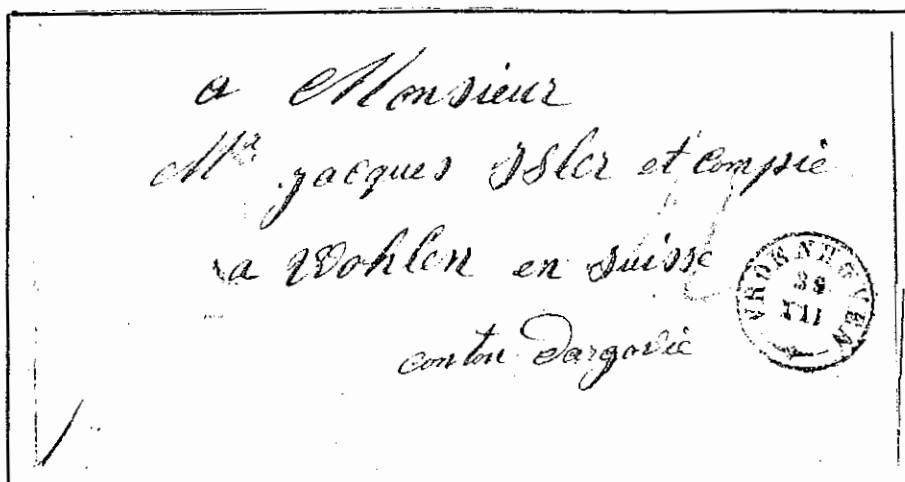 a Monsieur
Mr. jacques Isler et Compie
a Wohlen en Suisse
conton Dargovie
VROENHOVEN